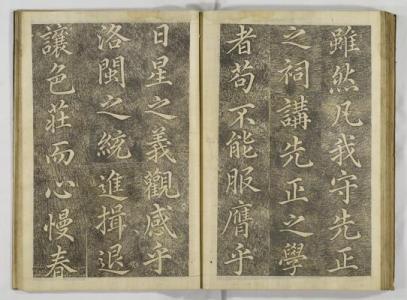 雖然凡我守先正
之祠講先正之學
者苟不能服膺乎
日星之義觀感乎
洛閩之統進揖退
讓色莊而心慢春